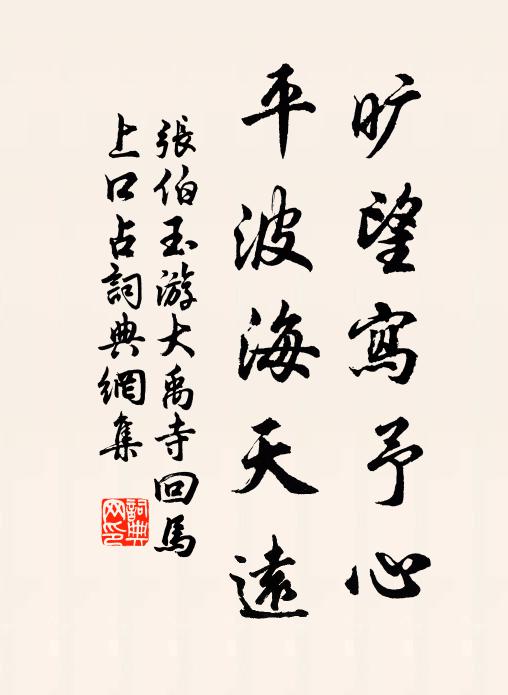 旷望寫予心
平波海天遠
張伯玉游大禹寺回馬
上口占詞典網集
詞典网印